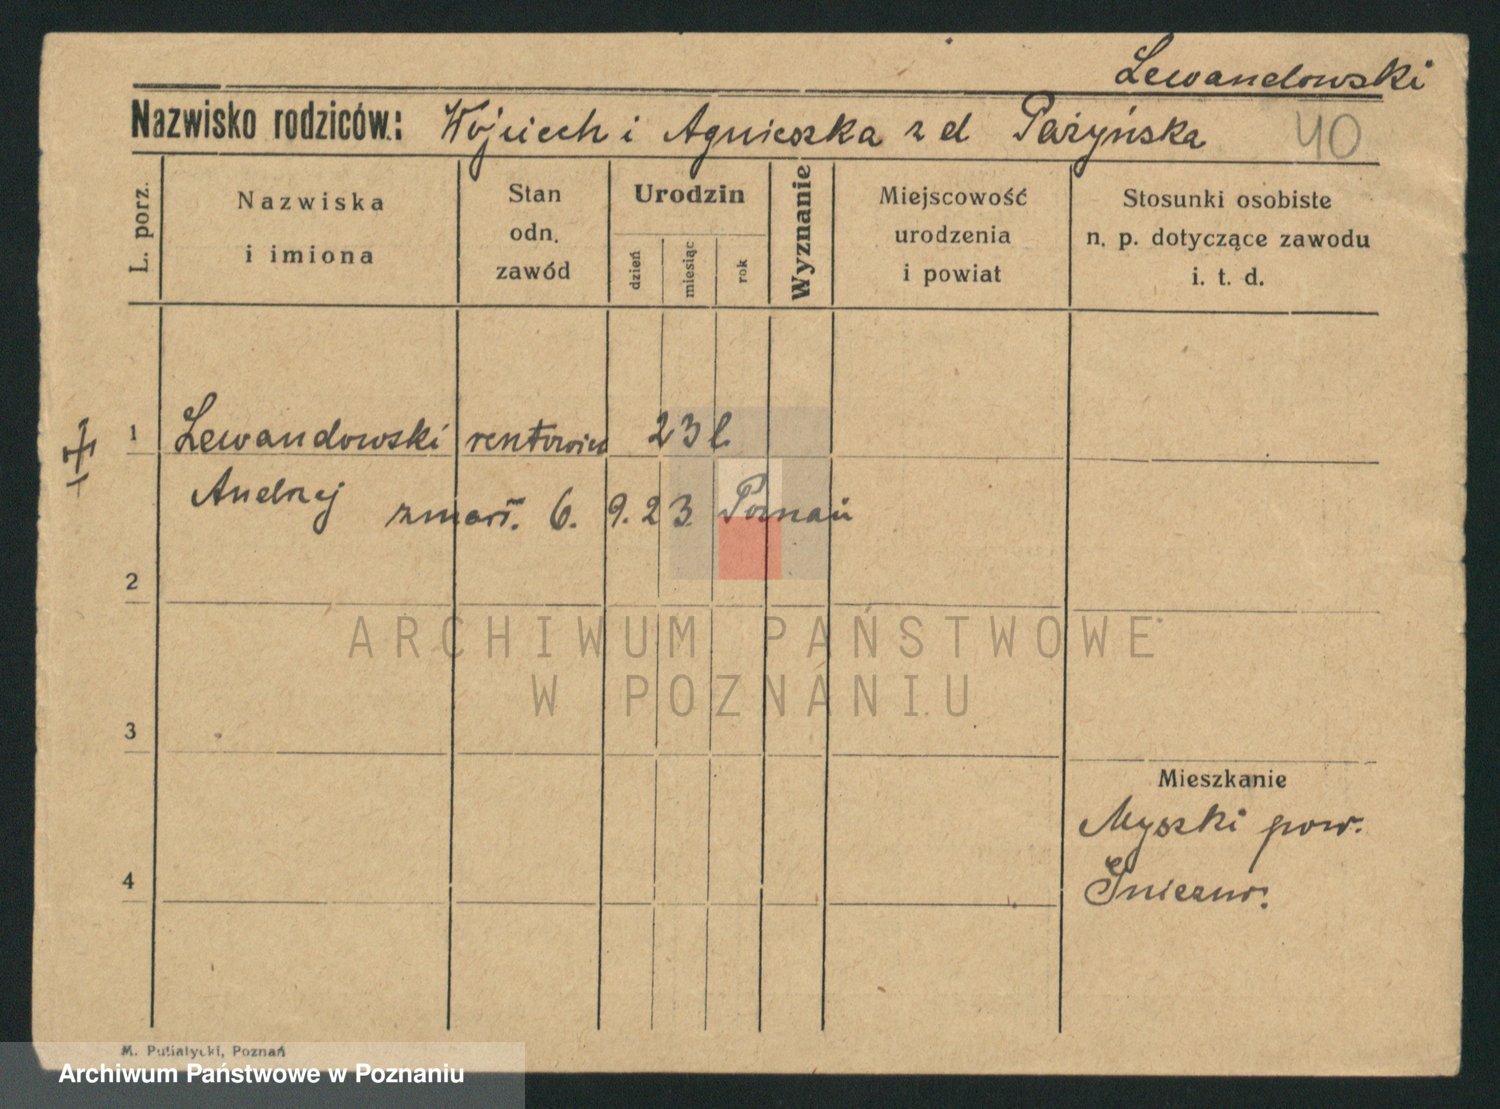 Lewandowski
Nazwisko rodziców: Wojciech i Agnieszka z d Parzyńska 40
L. porz.
Nazwiska
i imiona
Stan
odn.
zawód
Urodzin
dzień
miesiąc
rok
Wyznanie
Miejscowość
urodzenia
i powiat
Stosunki osobiste
n. p. dotyczące zawodu
i. t. d.
1 Lewandowski 23 l.
Andrzej zmarł. 6. 9. 23 Poznań
2
ARCHIWUM PAŃSTWOWE
W POZNANIU
3
Mieszkanie
Myszki pow.
4
Gnieznw.
M. Putiatycki, Poznań
Archiwum Państwowe w Poznaniu